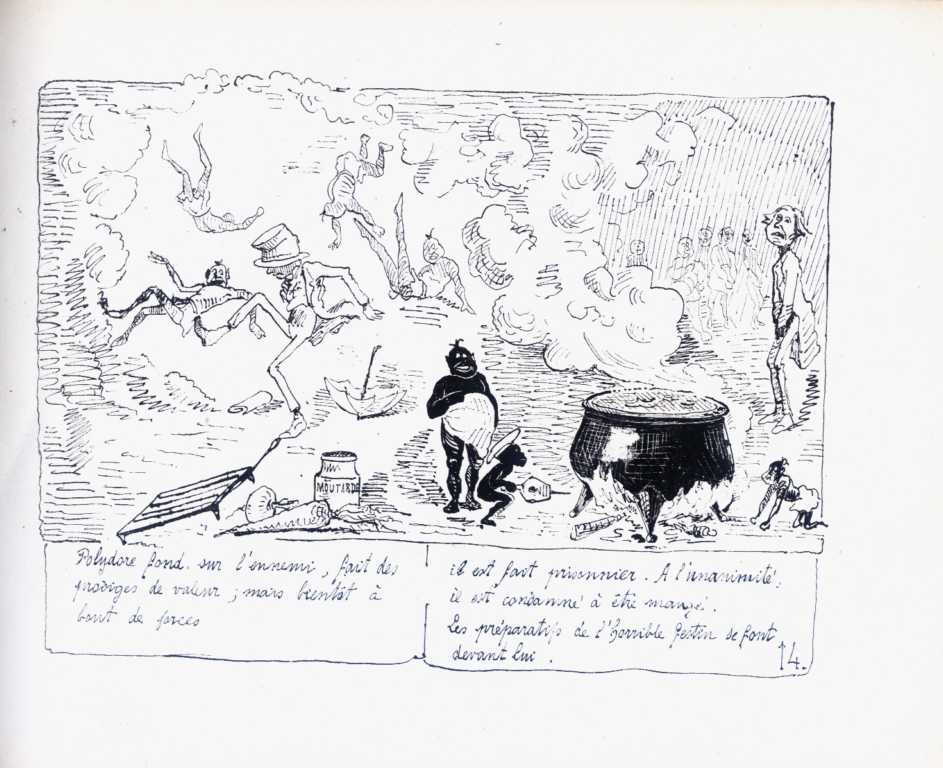 MOUTARDE
Polydore fond sur l'ennemi, fait des
prodiges de valeur ; mais bientôt à
bout de forces
il est fait prisonnier. A l'unanimité,
il est condamné à être mangé.
Les préparatifs de l'horrible festin se font
devant lui.
14.